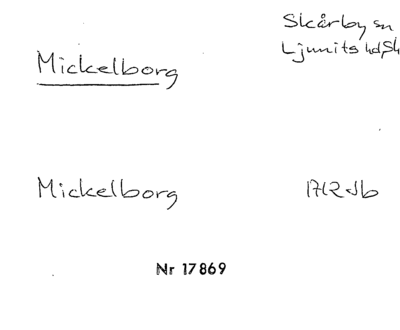 Skårby sn
Mickelborg
Ljunits hd, Sk
Mickelborg 1712 Jb
Nr 17869